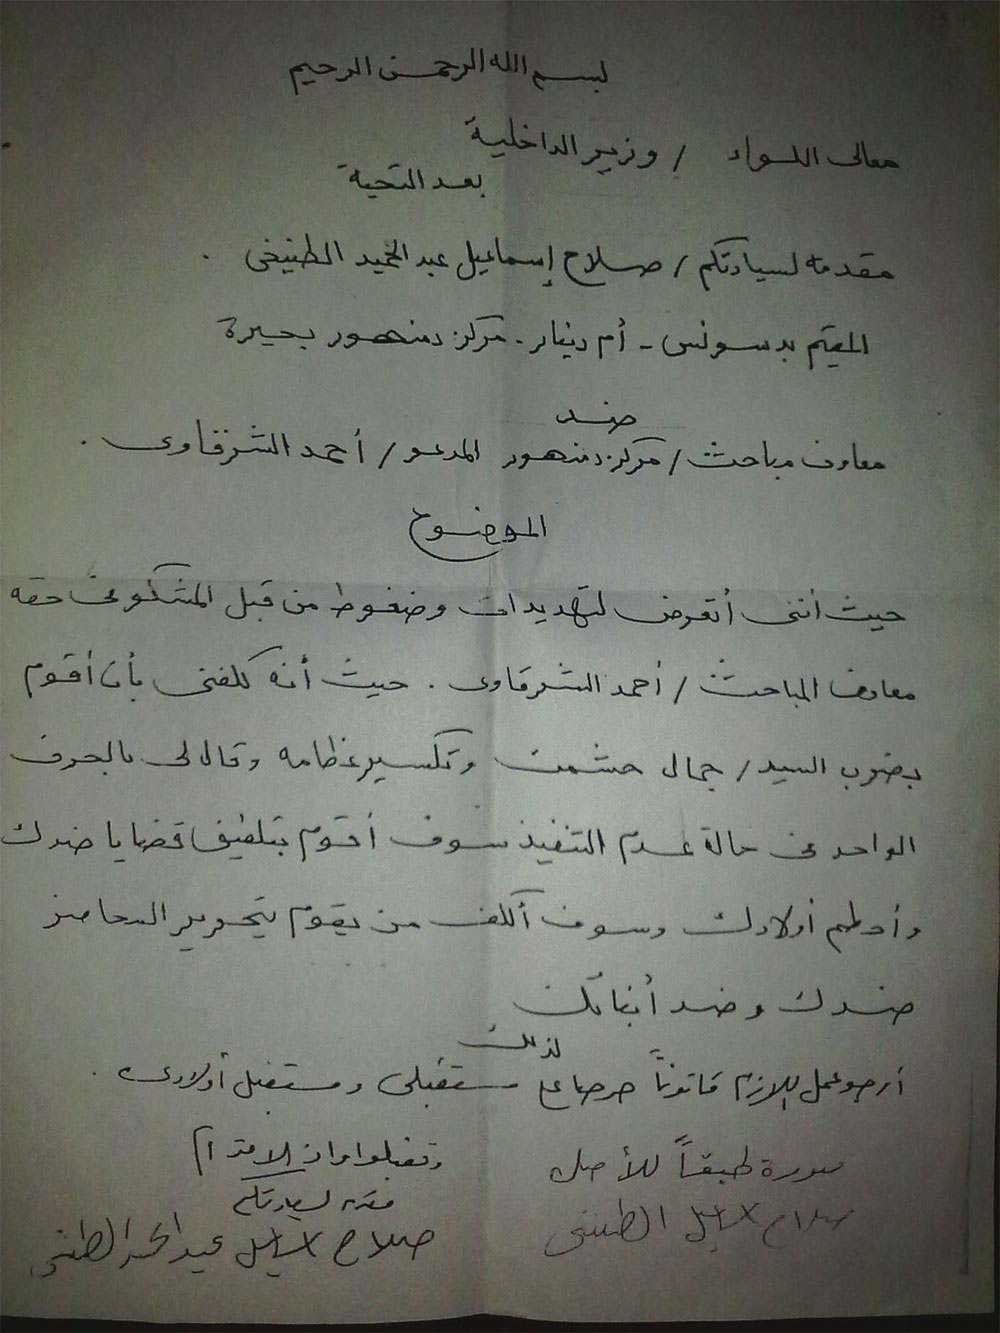 بسم الله الرحمن الرحيم
معالى اللواء / وزير الداخلية
بعد التحية
مقدمه لسيادتكم / صلاح إسماعيل عبد الحميد الطنيخى .
المقيم بدسونس - أم دينار - مركز دمنهور بحيرة
ضد
معاون مباحث / مركز دمنهور المدعو / أحمد الشرقاوى .
الموضوع
حيث أننى أتعرض لتهديدات وضغوط من قبل المشكو فى حقه
معاون المباحث / أحمد الشرقاوى . حيث أنه كلفنى بأن أقوم
بضرب السيد / جمال حشمت وتكسير عظامه وقال لى بالحرف
الواحد فى حالة عدم التنفيذ سوف أقوم بتلفيق قضايا ضدك
وأحطم أولادك وسوف أكلف من يقوم بتحرير المحاضر
ضدك وضد أبنائك
لذلك
أرجو عمل اللازم قانوناً حرصا على مستقبلى ومستقبل أولادى .
وتفضلوا وافر الاحترام
صورة طبقاً للأصل
مقدمه لسيادتكم
صلاح اسماعيل الطنيخى
صلاح اسماعيل عبد الحميد الطنيخى